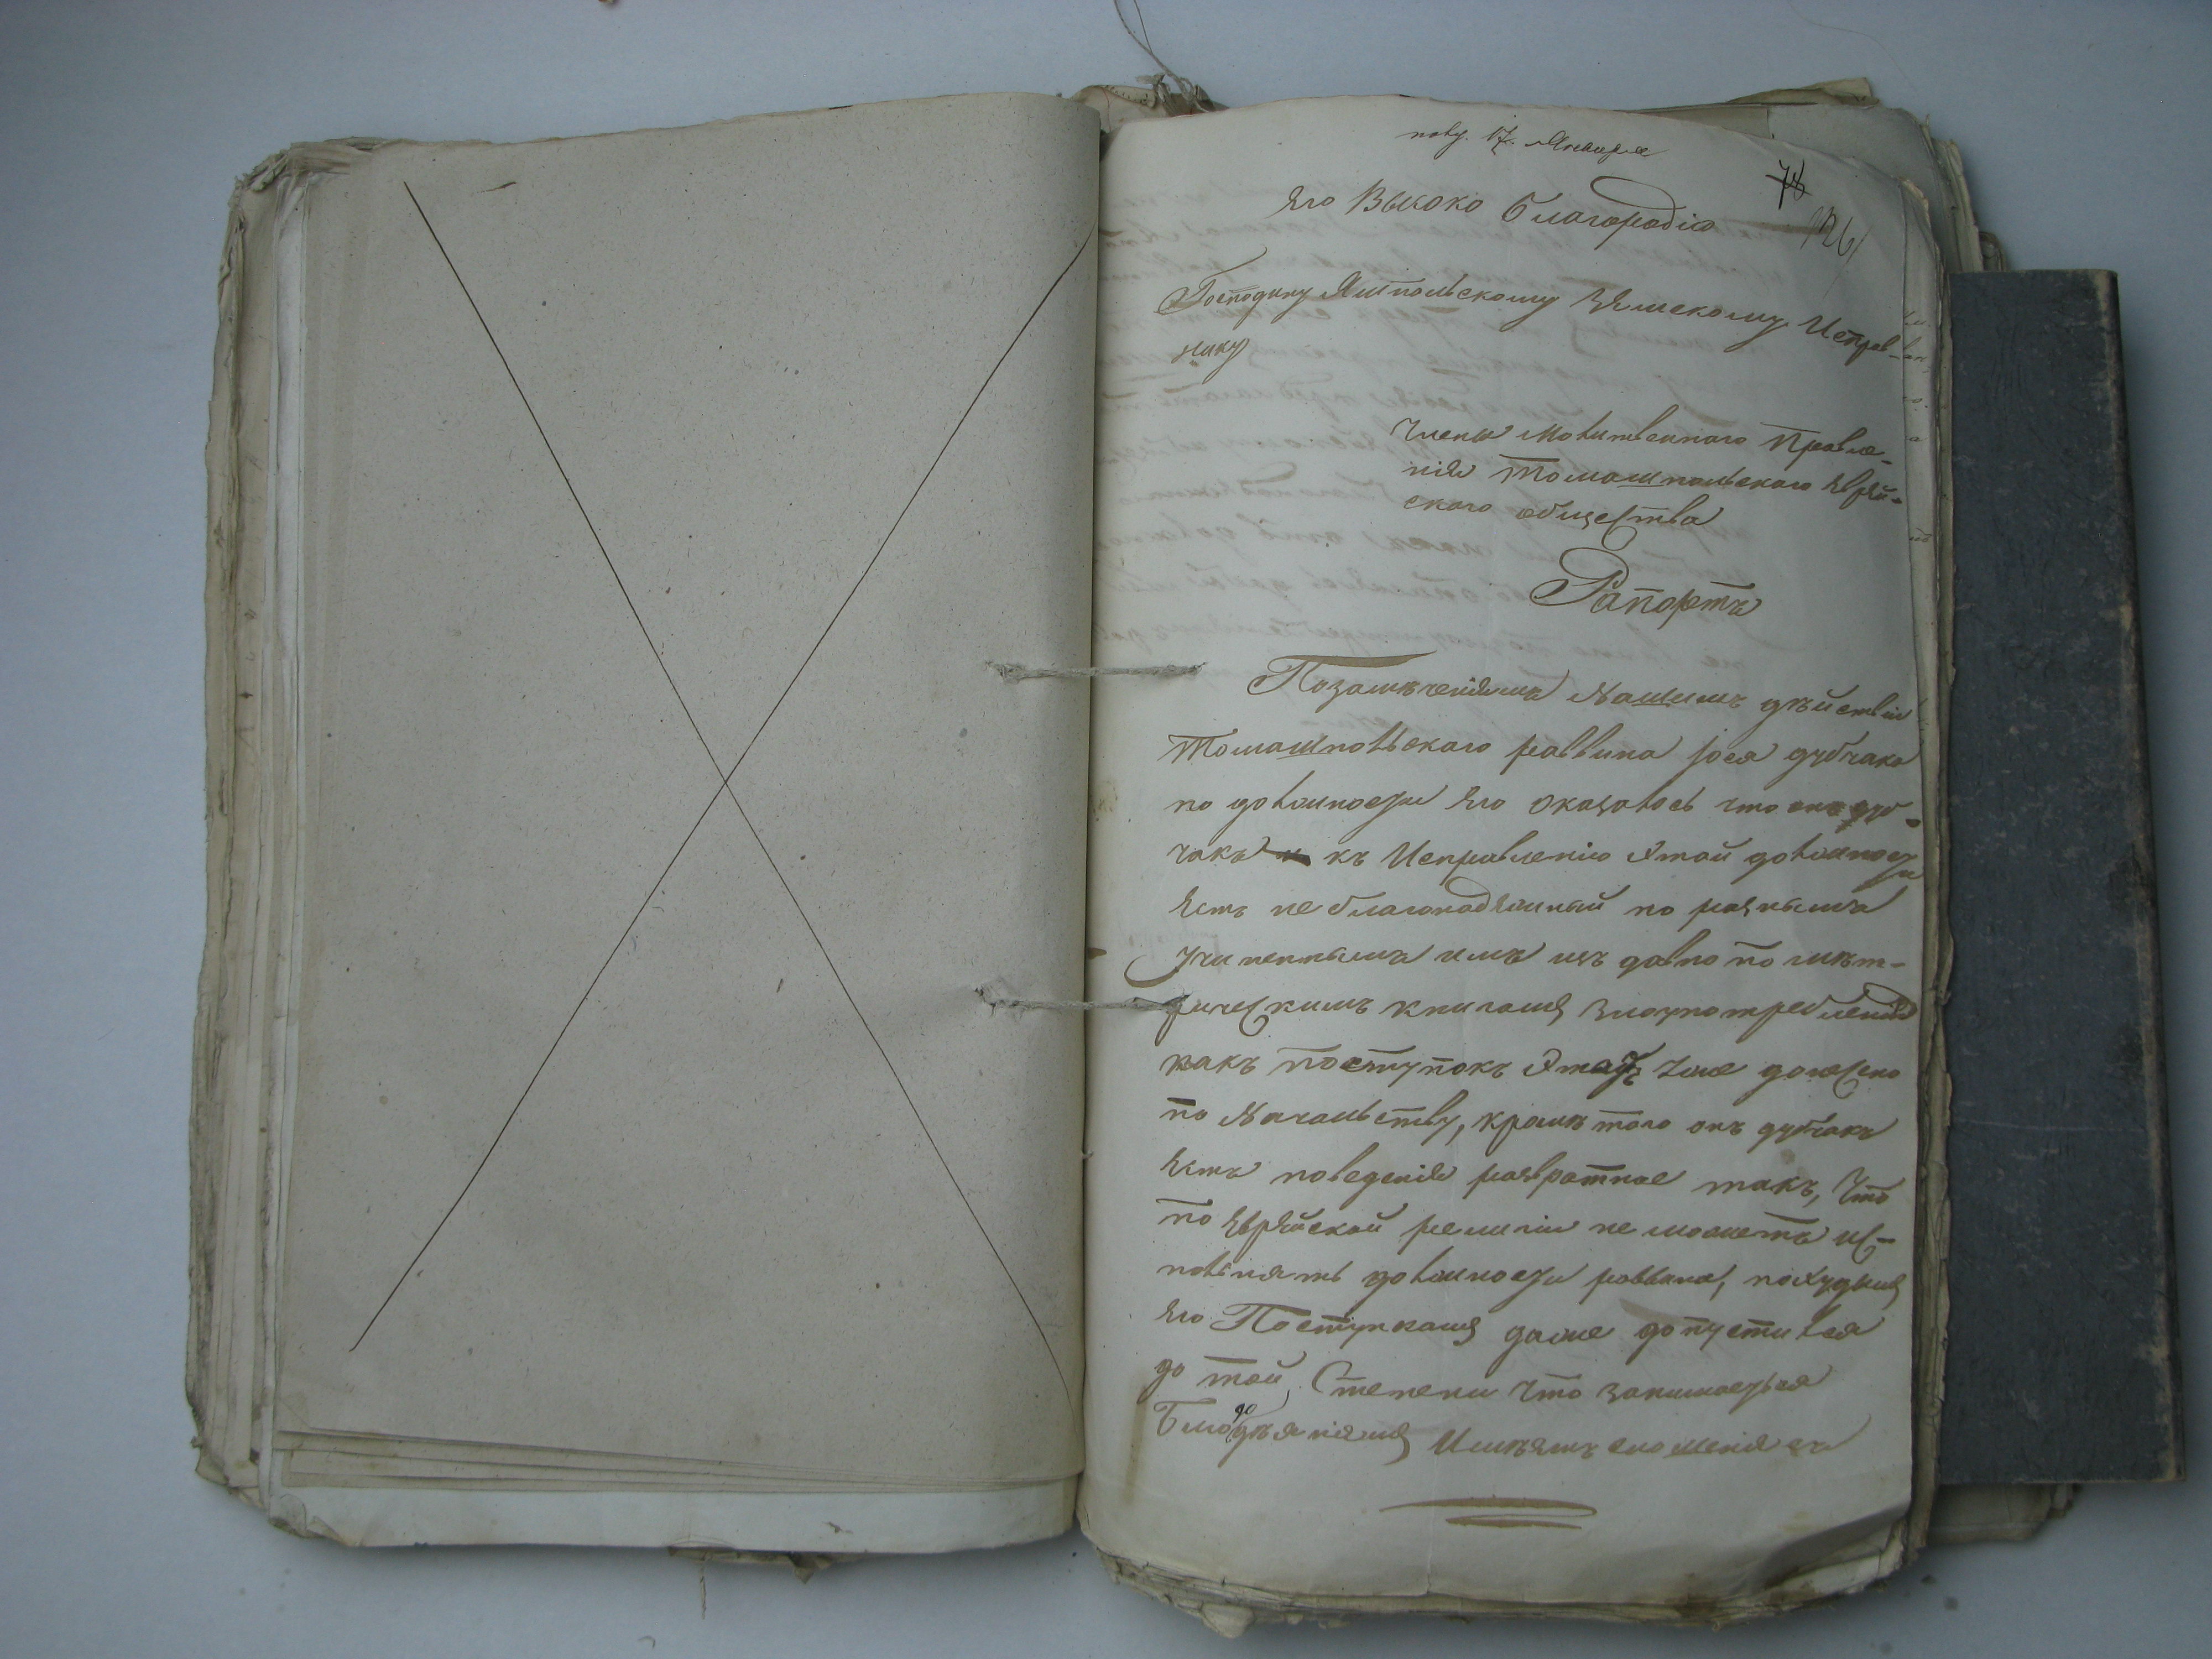 полу. 17. Января
78
126
Его Высоко Благородію
Господину Ямпольскому Земскому Исправ-
нику
Члены Молитвеннаго Правле-
нія Томашпольского Еврей-
ского общества
Рапортъ
Позамѣченіямъ Нашимъ дѣйствіи
Томашпольского раввина Іося дубчака
по должности Его оказалось что онъ дуб-
чакъ къ Исправленію Этой должности
Есть не благонадежный по разнымъ
Учиненнымъ имъ изъ давно по мѣт-
рическимъ книгамъ злоупотребленія
какъ поступокъ Этотъ Уже донесено
по Начальству, кромѣ того онъ дубчакъ
Есть поведенія развратное такъ, Что
по Еврейской религіи не можетъ ис-
полнять должности раввина, похудымъ
Его Поступкамъ даже допустился
до той Степени Что занимается
Блодѣяніямъ Имѣемъ сношенія съ